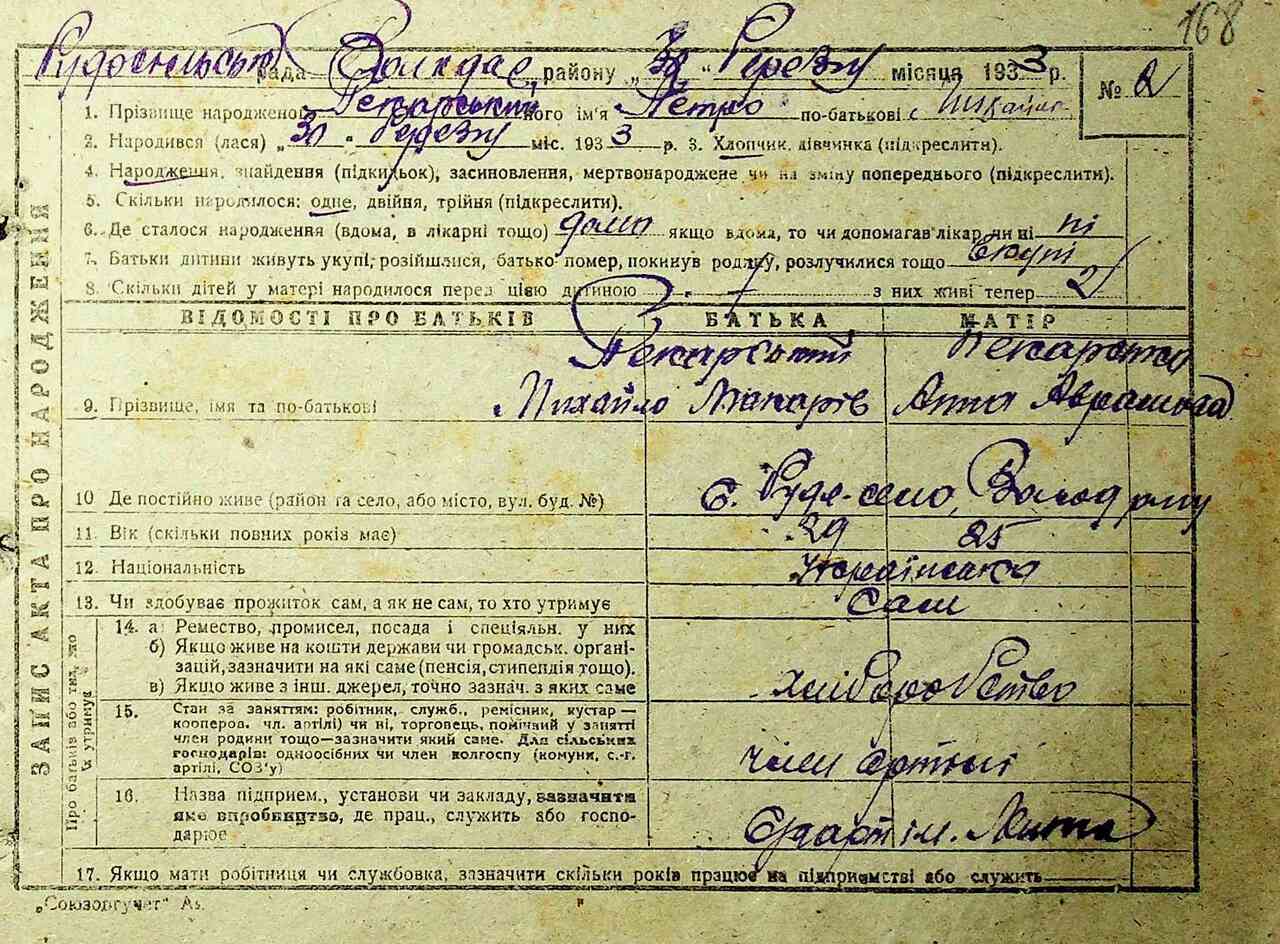 168
Рудосільськ рада Володар району „30“ Березня місяця 1933 р.
№ 2
1. Прізвище народженого Пекарський його ім'я Петро по-батькові
2. Народився (лася) „30“ Березня міс. 1933 р. 3. Хлопчик, дівчинка (підкреслити).
4. Народження, знайдення (підкидьок), засиновлення, мертвонароджене чи на зміну попереднього (підкреслити).
5. Скільки народилося: одне, двійня, трійня (підкреслити).
6. Де сталося народження (вдома, в лікарні тощо) дома якщо вдома, то чи допомагав лікар чи ні ні
7. Батьки дитини живуть укупі, розійшлися, батько помер, покинув родину, розлучилися тощо Вкупі
8. Скільки дітей у матері народилося перед цією дитиною з них живі тепер 2
ВІДОМОСТІ ПРО БАТЬКІВ БАТЬКА МАТІР
Пекарський Пекарська
9. Прізвище, імя та по-батькові Михайло Макарів Анна Аврамова
10 Де постійно живе (район та село, або місто, вул. буд. №) с. Рудя-село, Волод рну
11. Вік (скільки повних років має) 29 25
12. Національність Українська
13. Чи здобуває прожиток сам, а як не сам, то хто утримує Сам
14. а) Ремество, промисел, посада і спеціяльн. у них
б) Якщо живе на кошти держави чи громадськ. органі-
зацій, зазначити на які саме (пенсія, стипендія тощо).
в) Якщо живе з інш. джерел, точно зазнач. з яких саме хліборобство
15. Стан за заняттям: робітник, служб., ремісник, кустар—
коопероа. чл. артілі) чи ні, торговець, помічний у занятті
член родини тощо—зазначити який саме. Для сільських
господарів: одноосібних чи член колгоспу (комуни, с.-г.
артілі, СОЗ'у) член артілі
16. Назва підприєм., установи чи закладу, зазначити
яме виробництво, де прац., служить або госпо-
дарює
17. Якщо мати робітниця чи службовка, зазначити скільки років працює на підприємстві або служить
ЗАПИС АКТА ПРО НАРОДЖЕННЯ
Про батьків або тих, хто
їх утримує
„Союзоргучет“ Аз.